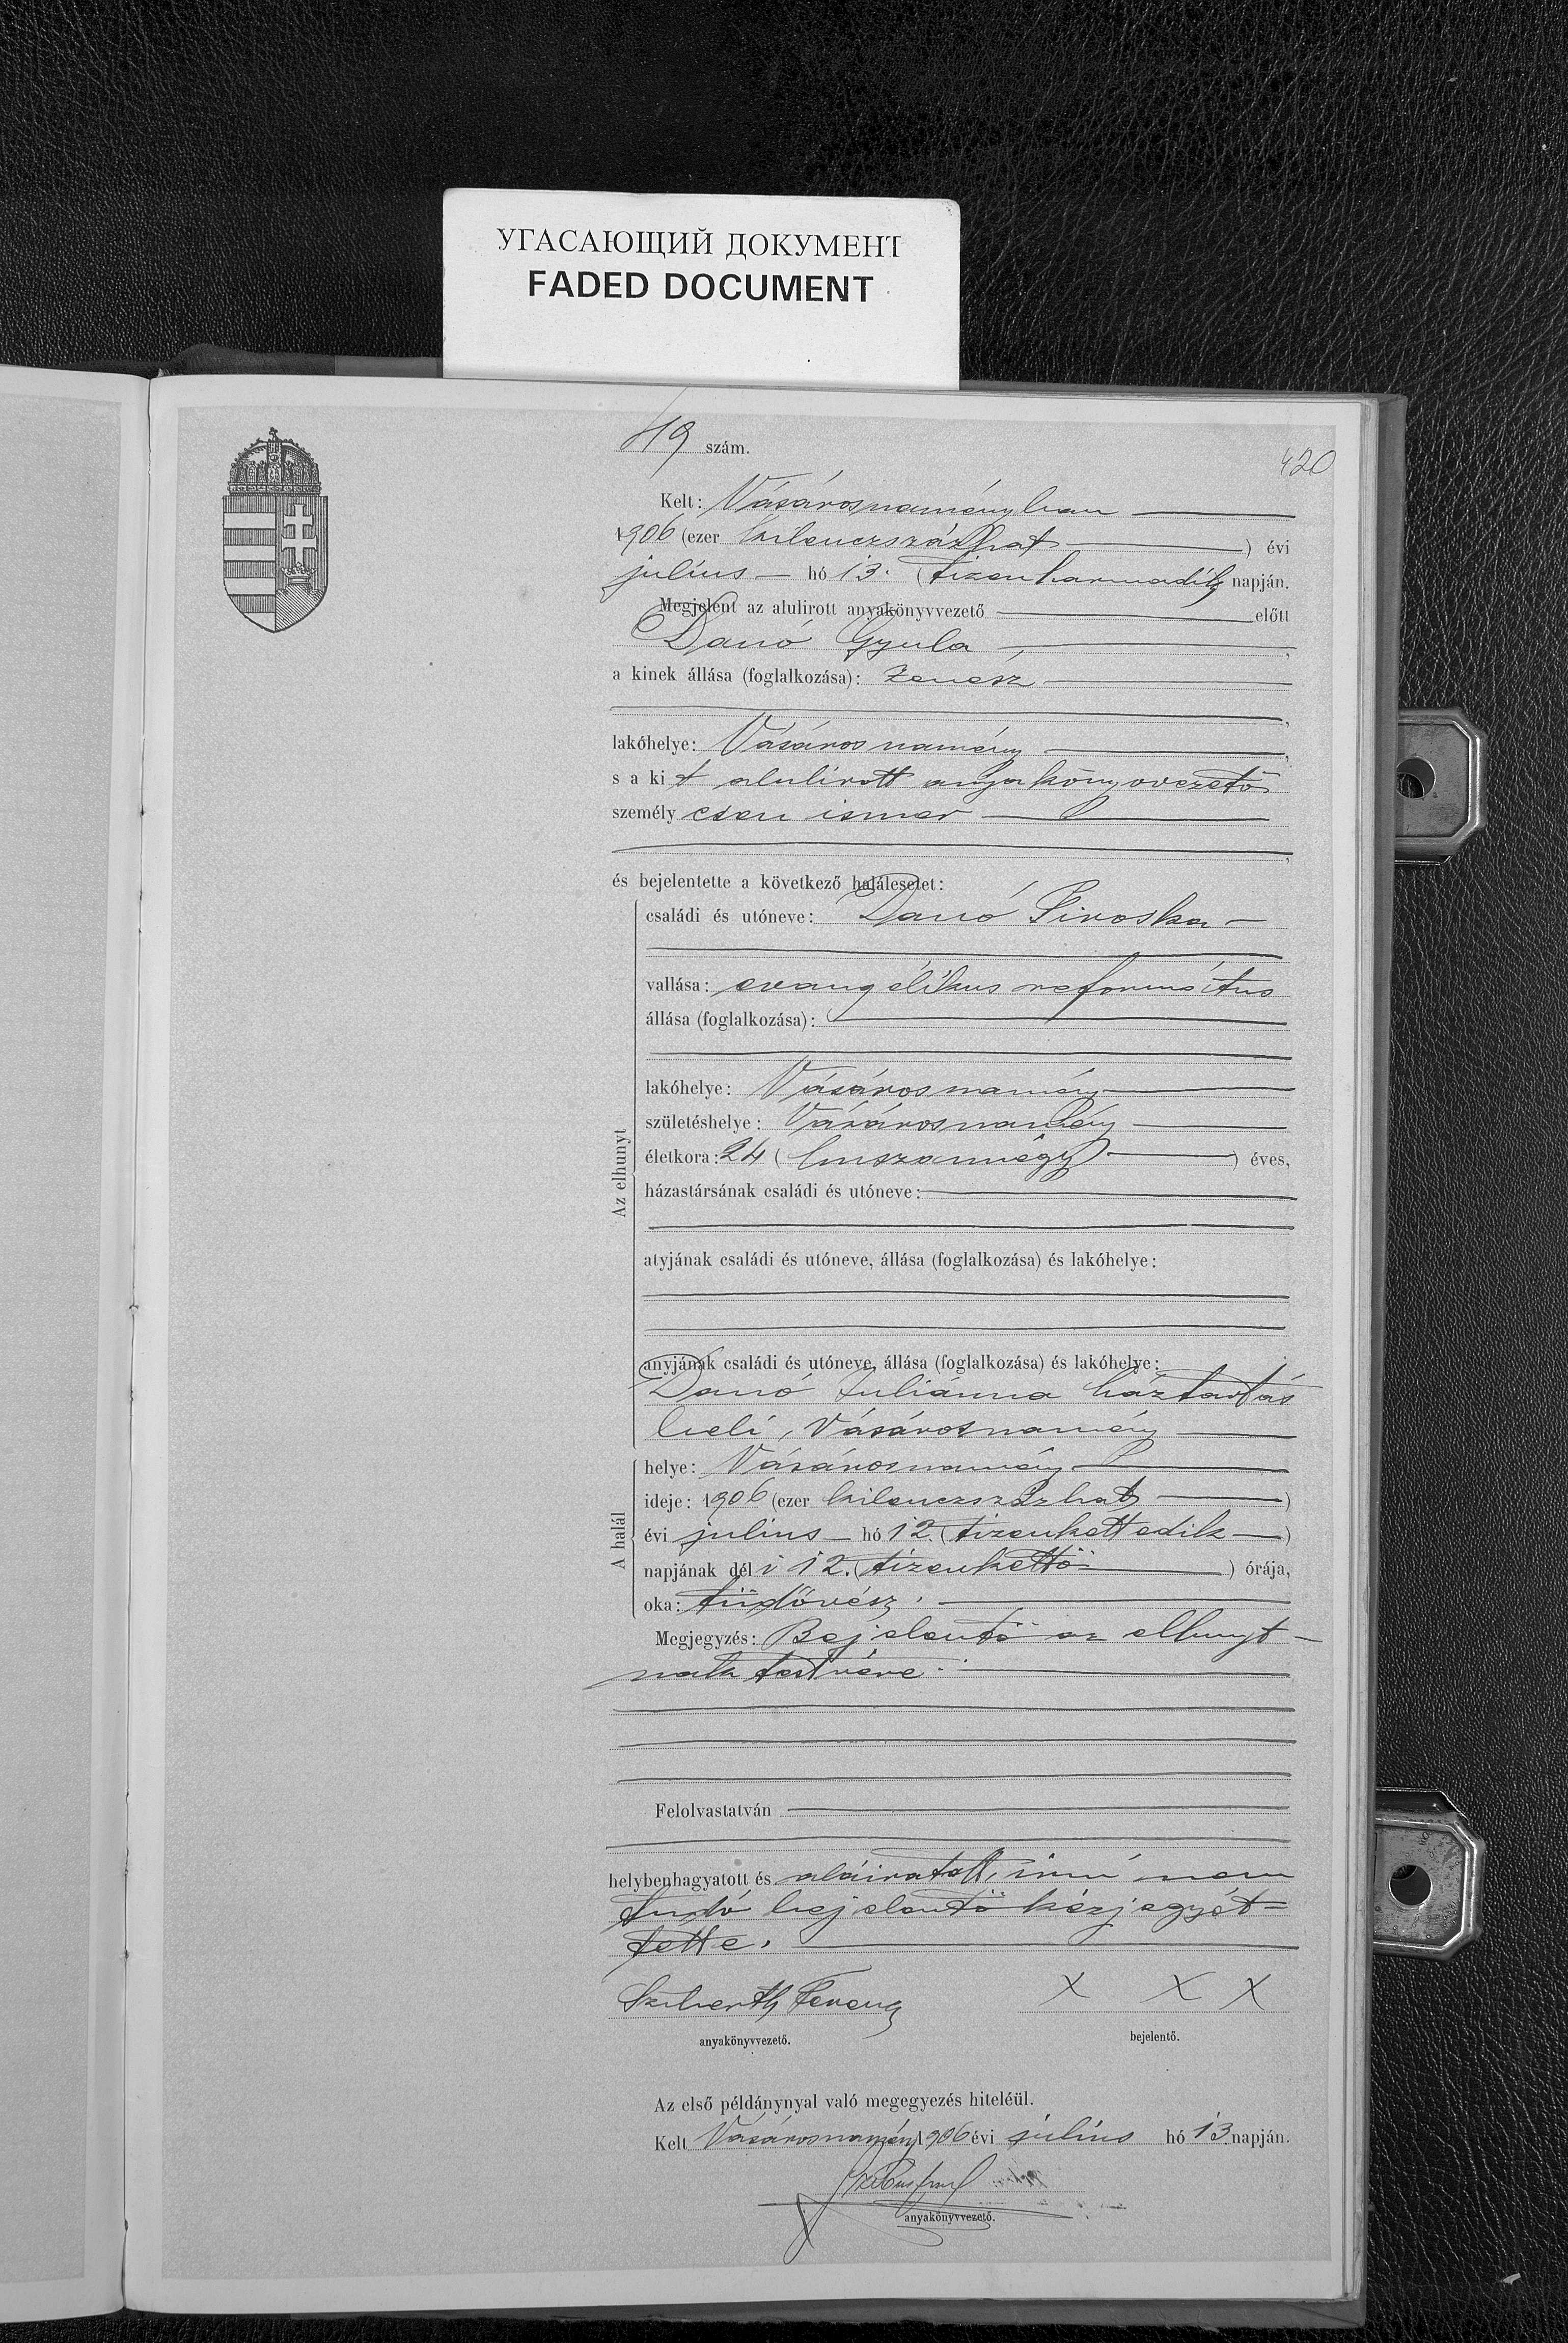 УГАСАЮЩИЙ ДОКУМЕНТ
FADED DOCUMENT
49 szám.
420
Kelt: Vásárosnaményban
1906 (ezer kilenczszázhat) évi
julius hó 13. (tizenharmadik napján.
Megjelent az alulirott anyakönyvvezető előtt
Danó Gyula,
a kinek állása (foglalkozása): zenész
lakóhelye: Vásárosnamény
s a kit alulirott anyakönyvvezető
személyesen ismer
és bejelentette a következő halálesetet:
Az elhunyt
családi és utóneve: Danó Piroska
vallása: evangélikus református
állása (foglalkozása):
lakóhelye: Vásárosnamény
születéshelye: Vásárosnamény
életkora: 24 (huszonnégy) éves,
házastársának családi és utóneve:
atyjának családi és utóneve, állása (foglalkozása) és lakóhelye:
anyjának családi és utóneve, állása (foglalkozása) és lakóhelye:
Danó Juliánna háztartás
beli, Vásárosnamény
A halál
helye: Vásárosnamény
ideje: 1906 (ezer kilenczszázhat)
évi julius hó 12. (tizenkettedik)
napjának déli 12. (tizenkettő) órája,
oka: tüdővész.
Megjegyzés: Bejelentő az elhunyt-
nak testvére.
Felolvastatván
helybenhagyatott és aláiratott, irni nem
tudó bejelentő kézjegyét
tette.
Ferencz X X X
anyakönyvvezető. bejelentő.
Az első példánynyal való megegyezés hiteléül.
Kelt Vásárosnamény 1906 évi július hó 13. napján.
anyakönyvvezető.